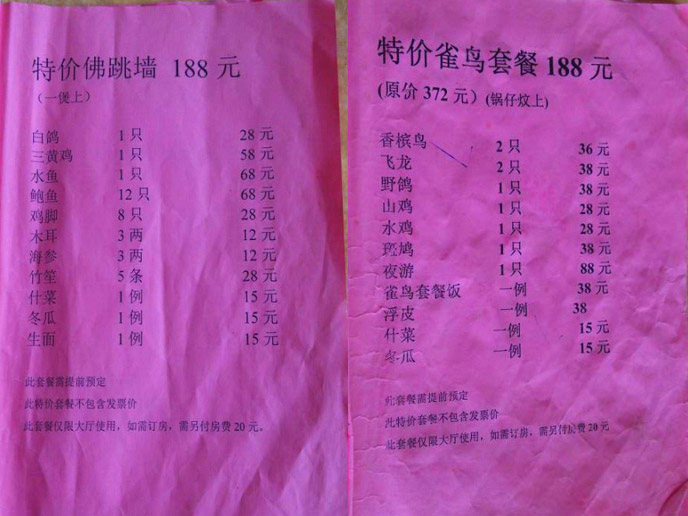 特价佛跳墙 188 元
（一煲上）
白鸽 1 只 28 元
三黄鸡 1 只 58 元
水鱼 1 只 68 元
鲍鱼 12 只 68 元
鸡脚 8 只 28 元
木耳 3 两 12 元
海参 3 两 12 元
竹笙 5 条 28 元
什菜 1 例 15 元
冬瓜 1 例 15 元
生面 1 例 15 元
此套餐需提前预定
此特价套餐不包含发票价
此套餐仅限大厅使用，如需订房，需另付房费 20 元。
特价雀鸟套餐 188 元
(原价 372 元）(锅仔炆上)
香槟鸟 2 只 36 元
飞龙 2 只 38 元
野鸽 1 只 38 元
山鸡 1 只 28 元
水鸡 1 只 28 元
斑鸠 1 只 38 元
夜游 1 只 88 元
雀鸟套餐饭 一例 38 元
浮皮 一例 38
什菜 一例 15 元
冬瓜 一例 15 元
此套餐需提前预定
此特价套餐不包含发票价
此套餐仅限大厅使用，如需订房，需另付房费 20 元